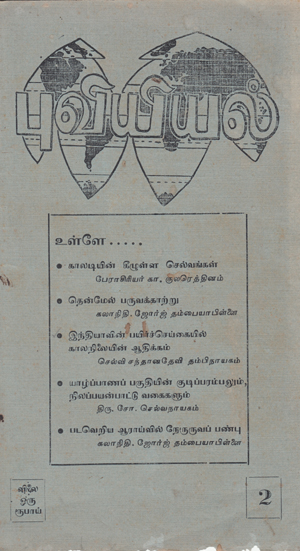 புவியியல்
உள்ளே . . . . .
காலடியின் கீழுள்ள செல்வங்கள்
பேராசிரியர் கா. குலரத்தினம்
தென்மேல் பருவக்காற்று
கலாநிதி. ஜோர்ஜ் தம்பையாபிள்ளை
இந்தியாவின் பயிர்ச்செய்கையில்
காலநிலையின் ஆதிக்கம்
செல்வி சந்தானதேவி தம்பிநாயகம்
யாழ்ப்பாணப் பகுதியின் குடிப்பரம்பலும்,
நிலப்பயன்பாட்டு வகைகளும்
திரு. சோ. செல்வநாயகம்
படவெறிய ஆராய்வில் நேருருவப் பண்பு
கலாநிதி. ஜோர்ஜ் தம்பையாபிள்ளை
விலை
ஒரு
ரூபாய்
2